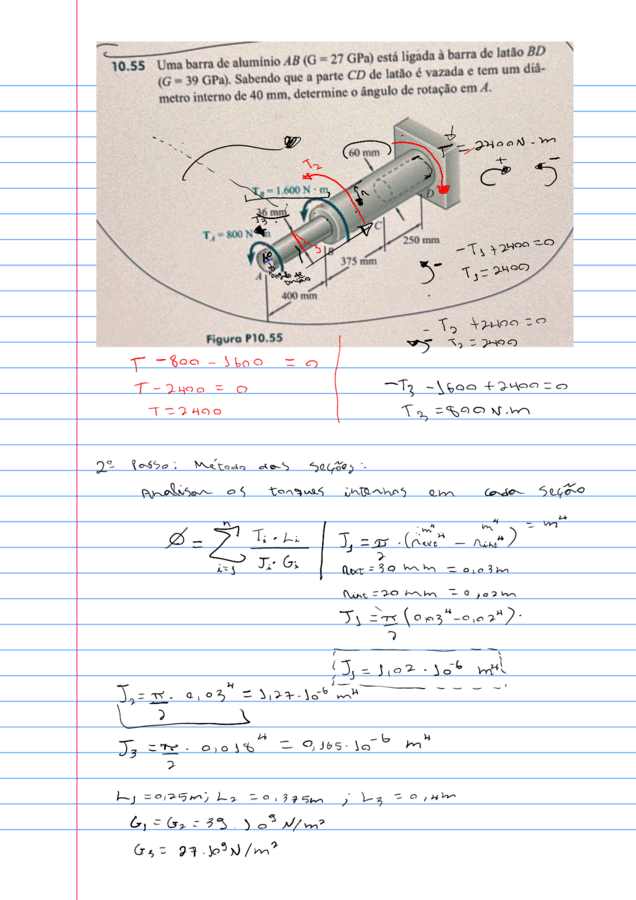 10.55 Uma barra de alumínio AB (G = 27 GPa) está ligada à barra de latão BD
(G = 39 GPa). Sabendo que a parte CD de latão é vazada e tem um diâ-
metro interno de 40 mm, determine o ângulo de rotação em A.
T = 2400 N.m
60 mm
T2
T_B = 1.600 N · m
36 mm
T3
T_A = 800 N · m
D
C
B
A
250 mm
375 mm
400 mm
-T1 + 2400 = 0
T1 = 2400
- T2 + 2400 = 0
T2 = 2400
Figura P10.55
T - 800 - 1600 = 0
T - 2400 = 0
T = 2400
-T3 - 1600 + 2400 = 0
T3 = 800 N.m
2º Passo: Método das seções:
Analisar os torques internos em cada seção
Ø = Σ (n, i=1) Ti · Li / Ji · Gi
J1 = π/2 · (rext⁴ - rint⁴) = m⁴
m⁴ m⁴
rext = 30 mm = 0,03m
rint = 20 mm = 0,02m
J1 = π/2 (0,03⁴ - 0,02⁴).
J1 = 1,02 · 10⁻⁶ m⁴
J2 = π/2 · 0,03⁴ = 1,27 · 10⁻⁶ m⁴
J3 = π/2 · 0,018⁴ = 0,165 · 10⁻⁶ m⁴
L1 = 0,25m; L2 = 0,375m ; L3 = 0,4m
G1 = G2 = 39 . 10⁹ N/m²
G3 = 27 . 10⁹ N/m²